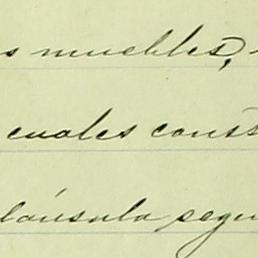 s muebles,
cuales cons
láusula segu